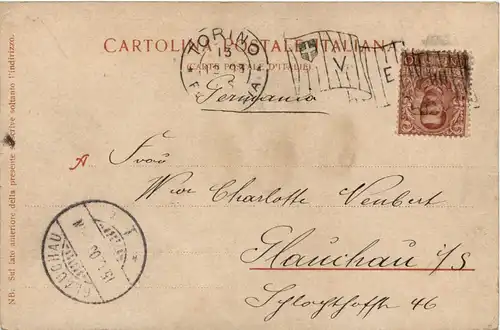 CARTOLINA POSTALE ITALIANA
(CARTE POSTALE D'ITALIE)
TORINO
13
Germania
V
E
A
Frau
Charlotte Neubert
Glauchau i/S
46
GLAUCHAU
NB: Sul lato anteriore della presente si scrive soltanto l'indirizzo.